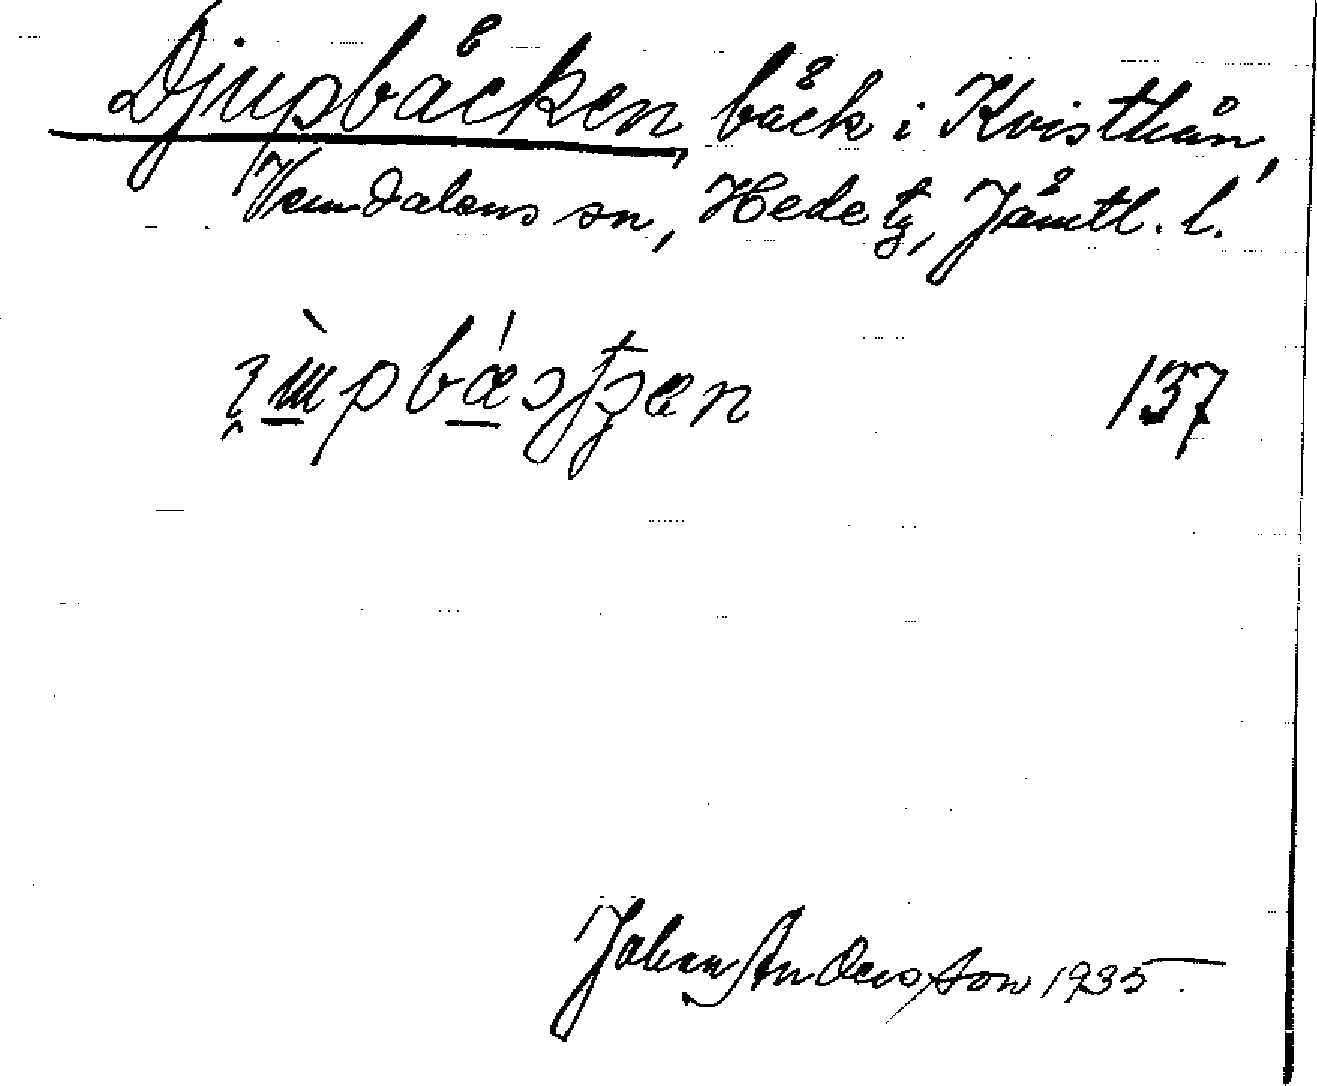 Djupbäcken, bäck i Kvisthån,
Vemdalens sn, Hede tg, Jämtl. l.
137
Johan Andersson 1935.